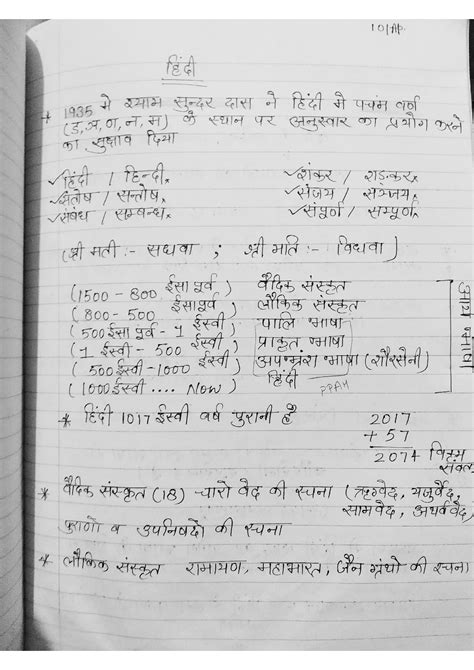 10/Ap.
हिंदी
* 1935 मे श्याम सुन्दर दास ने हिंदी मे पचंम वर्ण
(ड़,ञ,ण,न,म) के स्थान पर अनुस्वार का प्रयोग करने
का सुझाव दिया
✓हिंदी / हिन्दी× ✓शंकर / शङ्कर×
✓संतोष / सन्तोष× ✓संजय / सञ्जय×
✓संबंध / सम्बन्ध× ✓संपूर्ण / सम्पूर्ण×
(श्री मती :- सधवा ; श्री मति :- विधवा)
(1500 - 800 ईसा पूर्व) वैदिक संस्कृत
(800 - 500 ईसा पूर्व) लौकिक संस्कृत
(500 ईसा पूर्व - 1 ईस्वी) पालि भाषा
(1 ईस्वी - 500 ईस्वी) प्राकृत भाषा
(500 ईस्वी - 1000 ईस्वी) अपभ्रंश भाषा (शौरसेनी)
(1000 ईस्वी .... Now) हिंदी
PPAH
* हिंदी 1017 ईस्वी वर्ष पुरानी है 2017
+ 57
2074 विक्रम
संवत
* वैदिक संस्कृत (18) - चारो वेद की रचना (ऋग्वेद, यजुर्वेद,
सामवेद, अथर्ववेद)
पुराणो व उपनिषदो की रचना
* लौकिक संस्कृत रामायण, महाभारत, जैन ग्रंथो की रचना